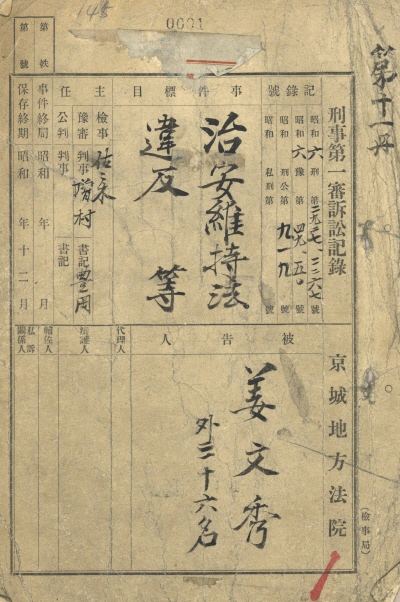 0001
148
第十一册
刑事第一審訴訟記錄
京城地方法院
(檢事局)
記錄號
昭和六刑第號
昭和六豫第四九、五〇號
昭和刑公第九一九號
昭和私刑第號
事件標目
治安維持法
違反等
主任
檢事佐々木
豫審判事增村書記豊田
公判判事書記
事件終局昭和年月
保存終期昭和年十二月
第帙
第號
被告人
姜文秀
外三十六名
代理人
辯護人
輔佐人
私訴關係人